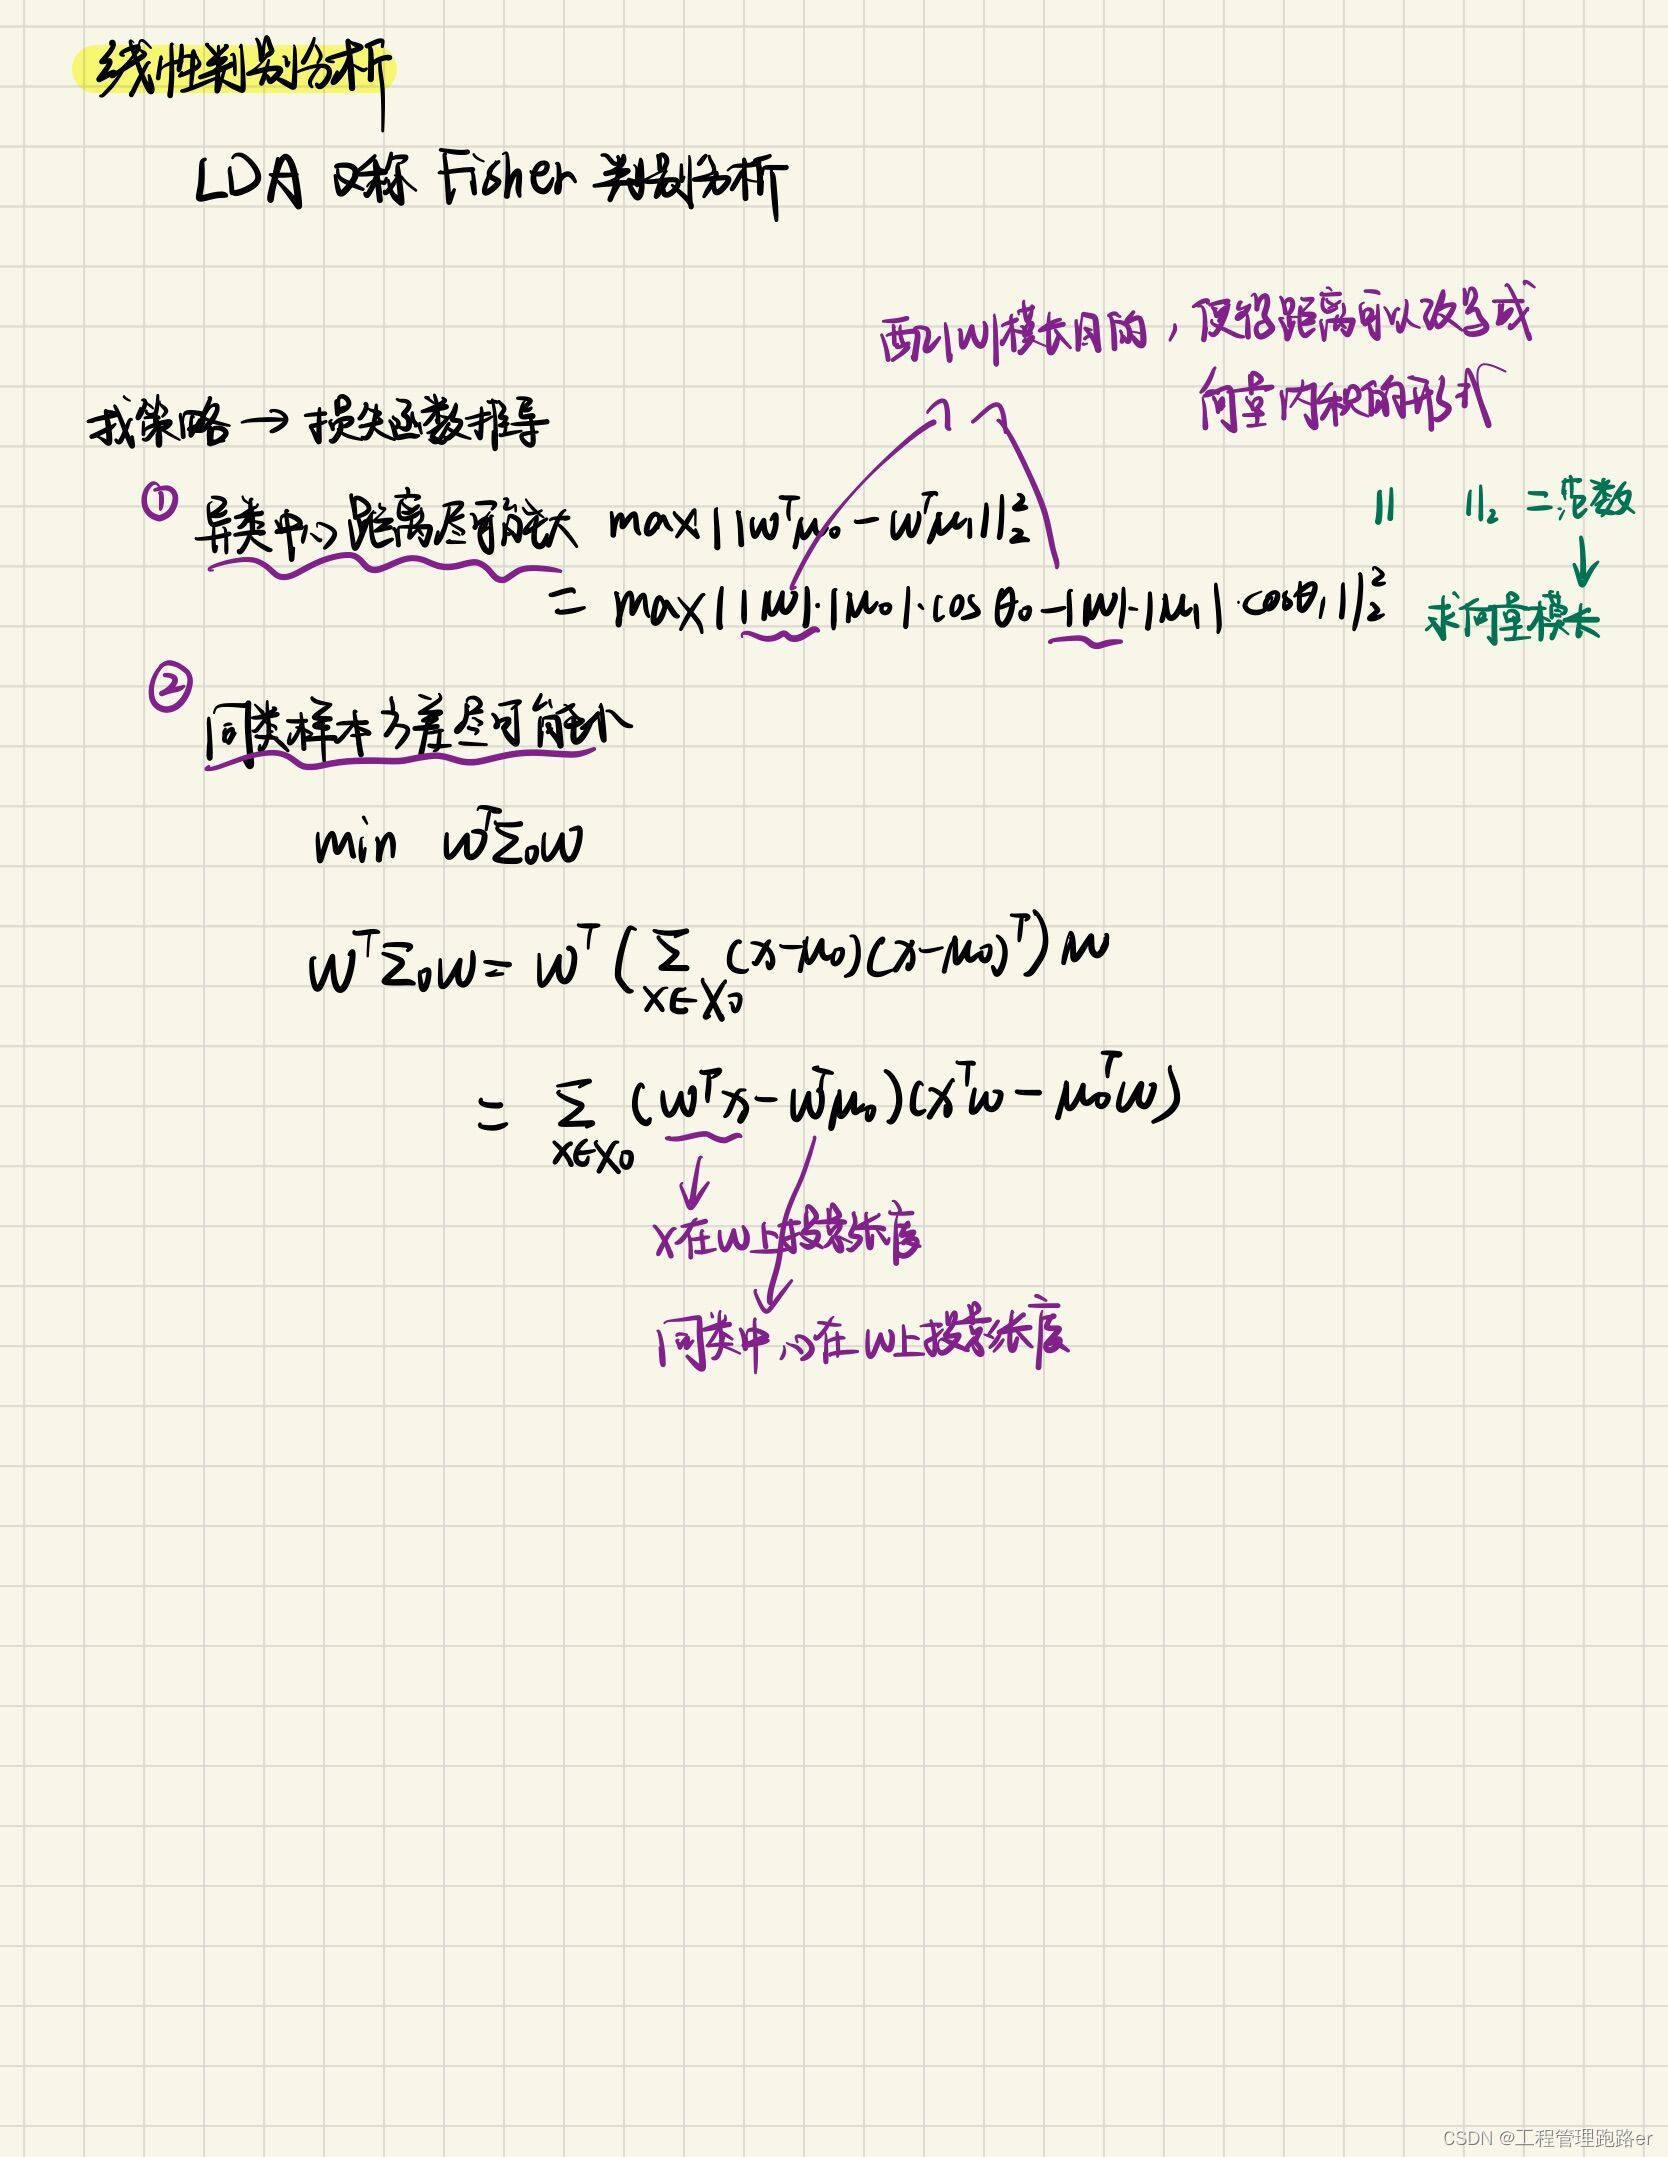 线性判别分析
LDA 又称 Fisher 判别分析
配凑|w|模长目的，使得距离可以改写成
向量内积的形式
找策略→损失函数推导
① 异类中心距离尽可能大 max||wᵀμ₀-wᵀμ₁||₂²
|| ||₂ 二范数
= max||w|·|μ₀|·cosθ₀-|w|·|μ₁|·cosθ₁||₂²
↓
求向量模长
② 同类样本方差尽可能小
min wᵀΣ₀w
wᵀΣ₀w = wᵀ(Σ (x-μ₀)(x-μ₀)ᵀ)w
x∈X₀
= Σ (wᵀx-wᵀμ₀)(xᵀw-μ₀ᵀw)
x∈X₀
x在w上投影长度
同类中心在w上投影长度
CSDN @工程管理跑路er